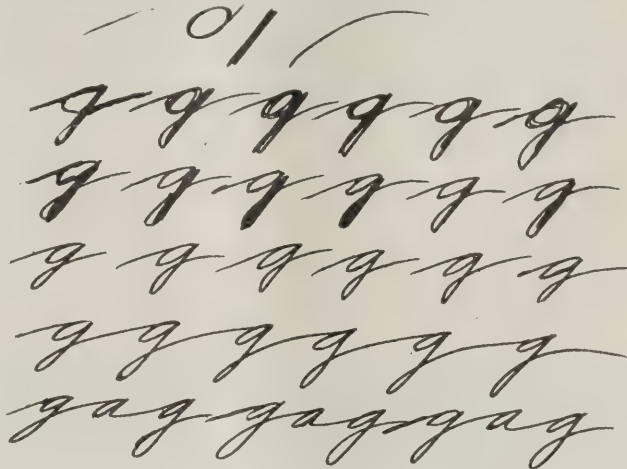 g g g g g g
g g g g g g
g g g g g g
g g g g g g
gag gag gag